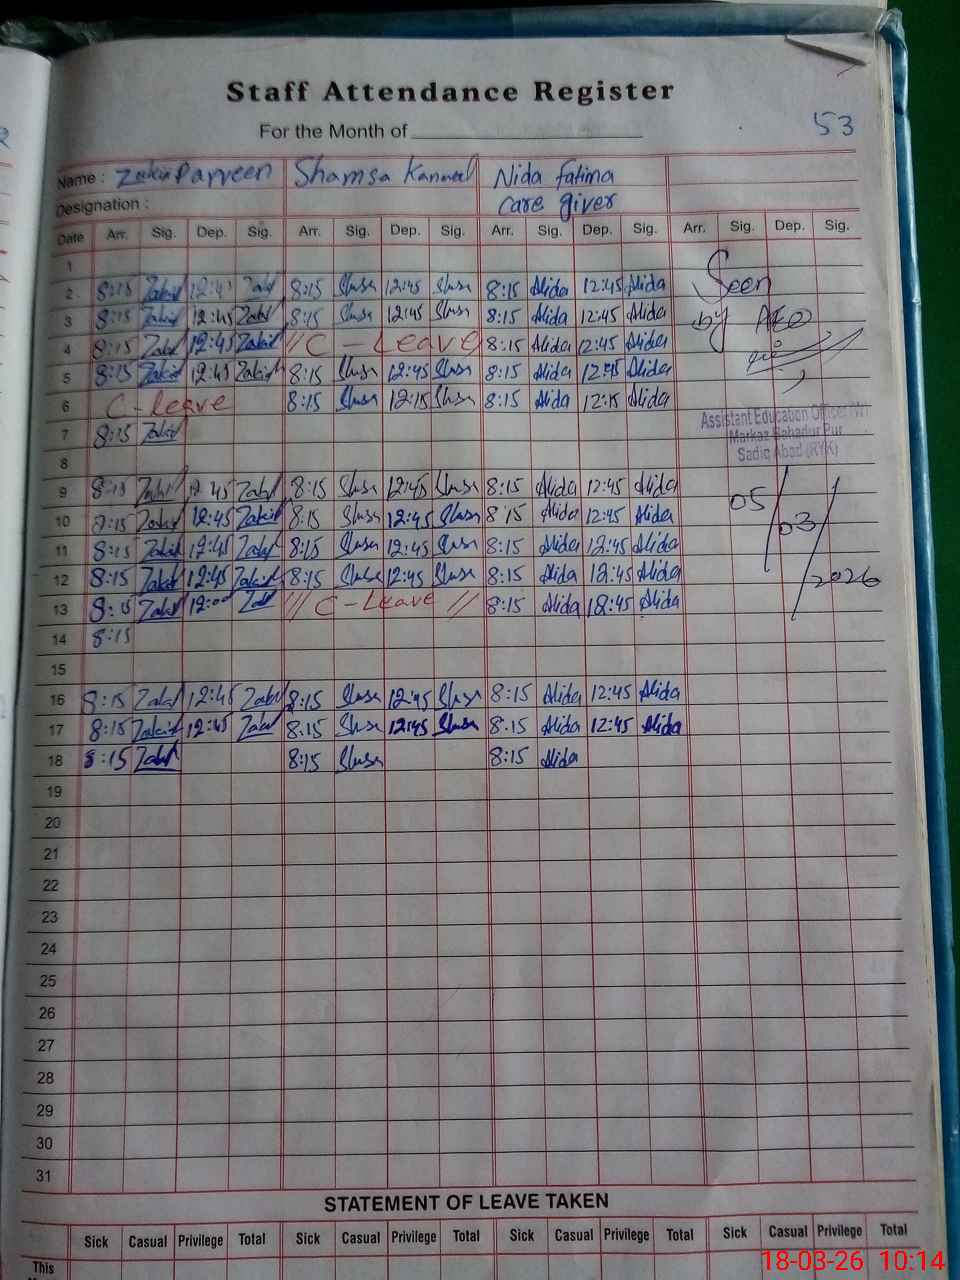 Staff Attendance Register
For the Month of
53
Name : Zakia Parveen Shamsa Kanwal Nida Fatima
Designation : Care giver
Date Arr. Sig. Dep. Sig. Arr. Sig. Dep. Sig. Arr. Sig. Dep. Sig. Arr. Sig. Dep. Sig.
1
2 8:15 12:45 8:15 12:45 8:15 Nida 12:45 Nida
3 8:15 12:45 8:15 12:45 8:15 Nida 12:45 Nida
4 8:15 12:45 // C - Leave 8:15 Nida 12:45 Nida
5 8:15 12:45 8:15 12:45 8:15 Nida 12:45 Nida
6 C - Leave 8:15 12:15 8:15 Nida 12:15 Nida
7 8:15
8
9 8:15 12:45 8:15 12:45 8:15 Nida 12:45 Nida
10 8:15 12:45 8:15 12:45 8:15 Nida 12:45 Nida
11 8:15 12:45 8:15 12:45 8:15 Nida 12:45 Nida
12 8:15 12:45 8:15 12:45 8:15 Nida 12:45 Nida
13 8:15 12:00 /// C - Leave // 8:15 Nida 12:45 Nida
14 8:15
15
16 8:15 12:45 8:15 12:45 8:15 Nida 12:45 Nida
17 8:15 12:45 8:15 12:45 8:15 Nida 12:45 Nida
18 8:15 8:15 8:15 Nida
19
20
21
22
23
24
25
26
27
28
29
30
31
Seen
by AEO
Assistant Education Officer
Markaz Bahadur Pur
Sadiq Abad (RYK)
05/03/2026
STATEMENT OF LEAVE TAKEN
Sick Casual Privilege Total Sick Casual Privilege Total Sick Casual Privilege Total Sick Casual Privilege Total
This
18-03-26 10:14